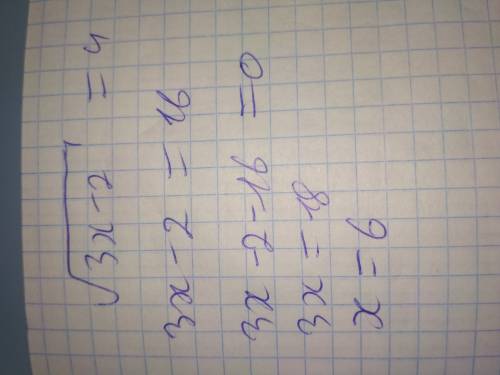 √3x-2 = 4
3x-2 = 16
3x-2-16 = 0
3x = 18
x = 6